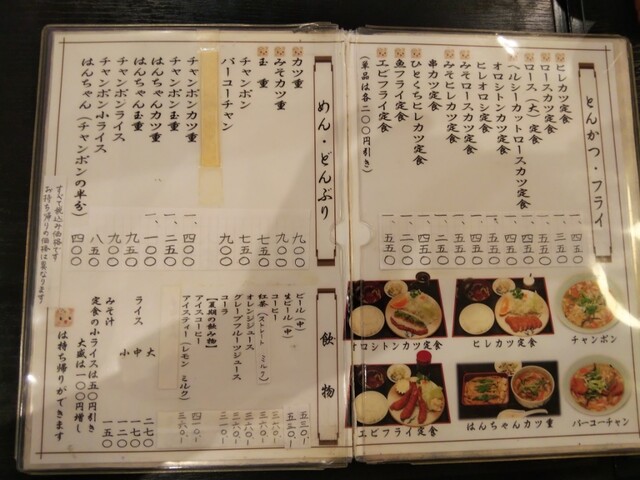 とんかつ・フライ
ヒレカツ定食
ロースカツ定食
ロース（大）定食
ヘルシーカットロースカツ定食
オロシトンカツ定食
ヒレオロシ定食
みそロースカツ定食
みそヒレカツ定食
串カツ定食
ひとくちヒレカツ定食
魚フライ定食
エビフライ定食
（単品は各二〇〇円引き）
チャンポン
ヒレカツ定食
オロシトンカツ定食
バーコーチャン
はんちゃんカツ重
エビフライ定食
めん・どんぶり
カツ重 九〇〇
みそカツ重 九〇〇
玉重 七五〇
チャンポン 七五〇
バーコーチャン 九〇〇
チャンポンカツ重 一、四〇〇
チャンポン玉重 一、二五〇
はんちゃんカツ重 一、一〇〇
はんちゃん玉重 九五〇
チャンポンライス 九〇〇
チャンポン小ライス 八五〇
はんちゃん（チャンポンの半分） 四〇〇
すべて税込み価格です
お持ち帰りの価格は異なります
飲物
ビール（中） 五五〇
生ビール（中） 五五〇
コーヒー 三六〇
紅茶（ストレート ミルク） 三六〇
オレンジジュース 三六〇
グレープフルーツジュース 三六〇
コーラ 三一〇
【夏期の飲み物】
アイスコーヒー 四一〇
アイスティー（レモン ミルク） 三六〇
ライス
大 二七〇
中 一七〇
小 一二〇
みそ汁 一五〇
定食の小ライスは五〇円引き
大盛は一〇〇円増し
は持ち帰りができます